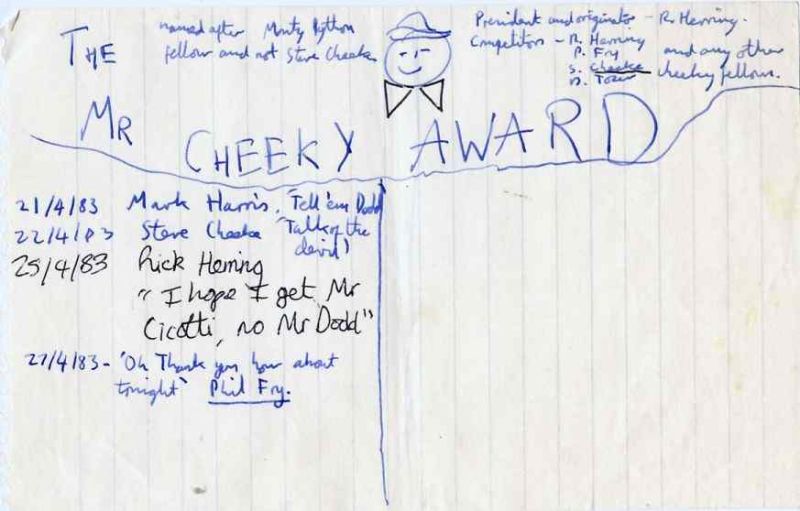 named after Monty Python
fellow and not Steve Cheeke
President and originator - R. Herring.
Competitors - R. Herring
P. Fry
S. Cheeke
D. Tozer
and any other
cheeky fellows.
THE
MR
CHEEKY AWARD
21/4/83 Mark Harris, 'Tell 'em Dodd'
22/4/83 Steve Cheeke 'Talk of the
devil'
25/4/83 Rick Herring
"I hope I get Mr
Cicotti, no Mr Dodd"
27/4/83 - 'Oh Thank you, how about
tonight' Phil Fry.